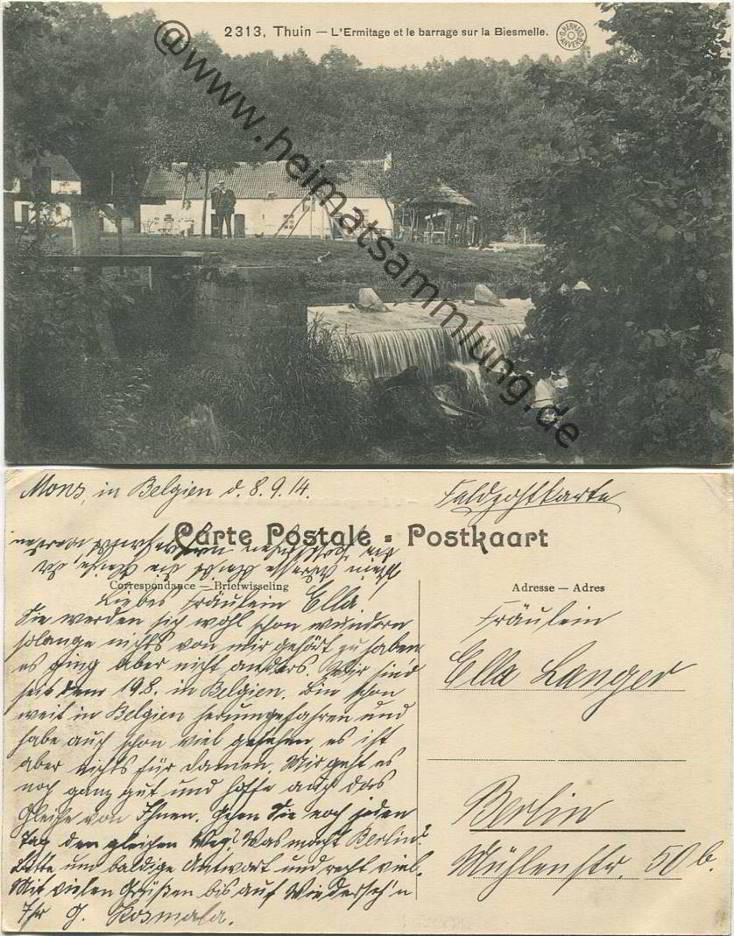 2313, Thuin — L'Ermitage et le barrage sur la Biesmelle.
NELS HERMANS ANVERS
@www.heimatsammlung.de
Mons, in Belgien d. 8.9.14.
Feldpostkarte
Carte Postale - Postkaart
Correspondance — Briefwisseling
Adresse — Adres
Liebes Fräulein Ella!
Sie werden sich wohl schon wundern
solange nichts von mir gehört zu haben
es ging aber nicht anders. Wir sind
seit dem 19.8. in Belgien. Bin schon
weit in Belgien herumgefahren und
habe auch schon viel gesehen es ist
aber nichts für Damen. Mir geht es
noch ganz gut und hoffe auch das
Gleiche von Ihnen. Gehen Sie noch jeden
Tag den gleichen Weg? Was macht Berlin?
Bitte um baldige Antwort und recht viel.
Mit vielen Grüßen bis auf Wiederseh'n
Ihr G. Kosmala.
Fräulein
Ella Langer
Berlin
Mühlenstr. 50b.